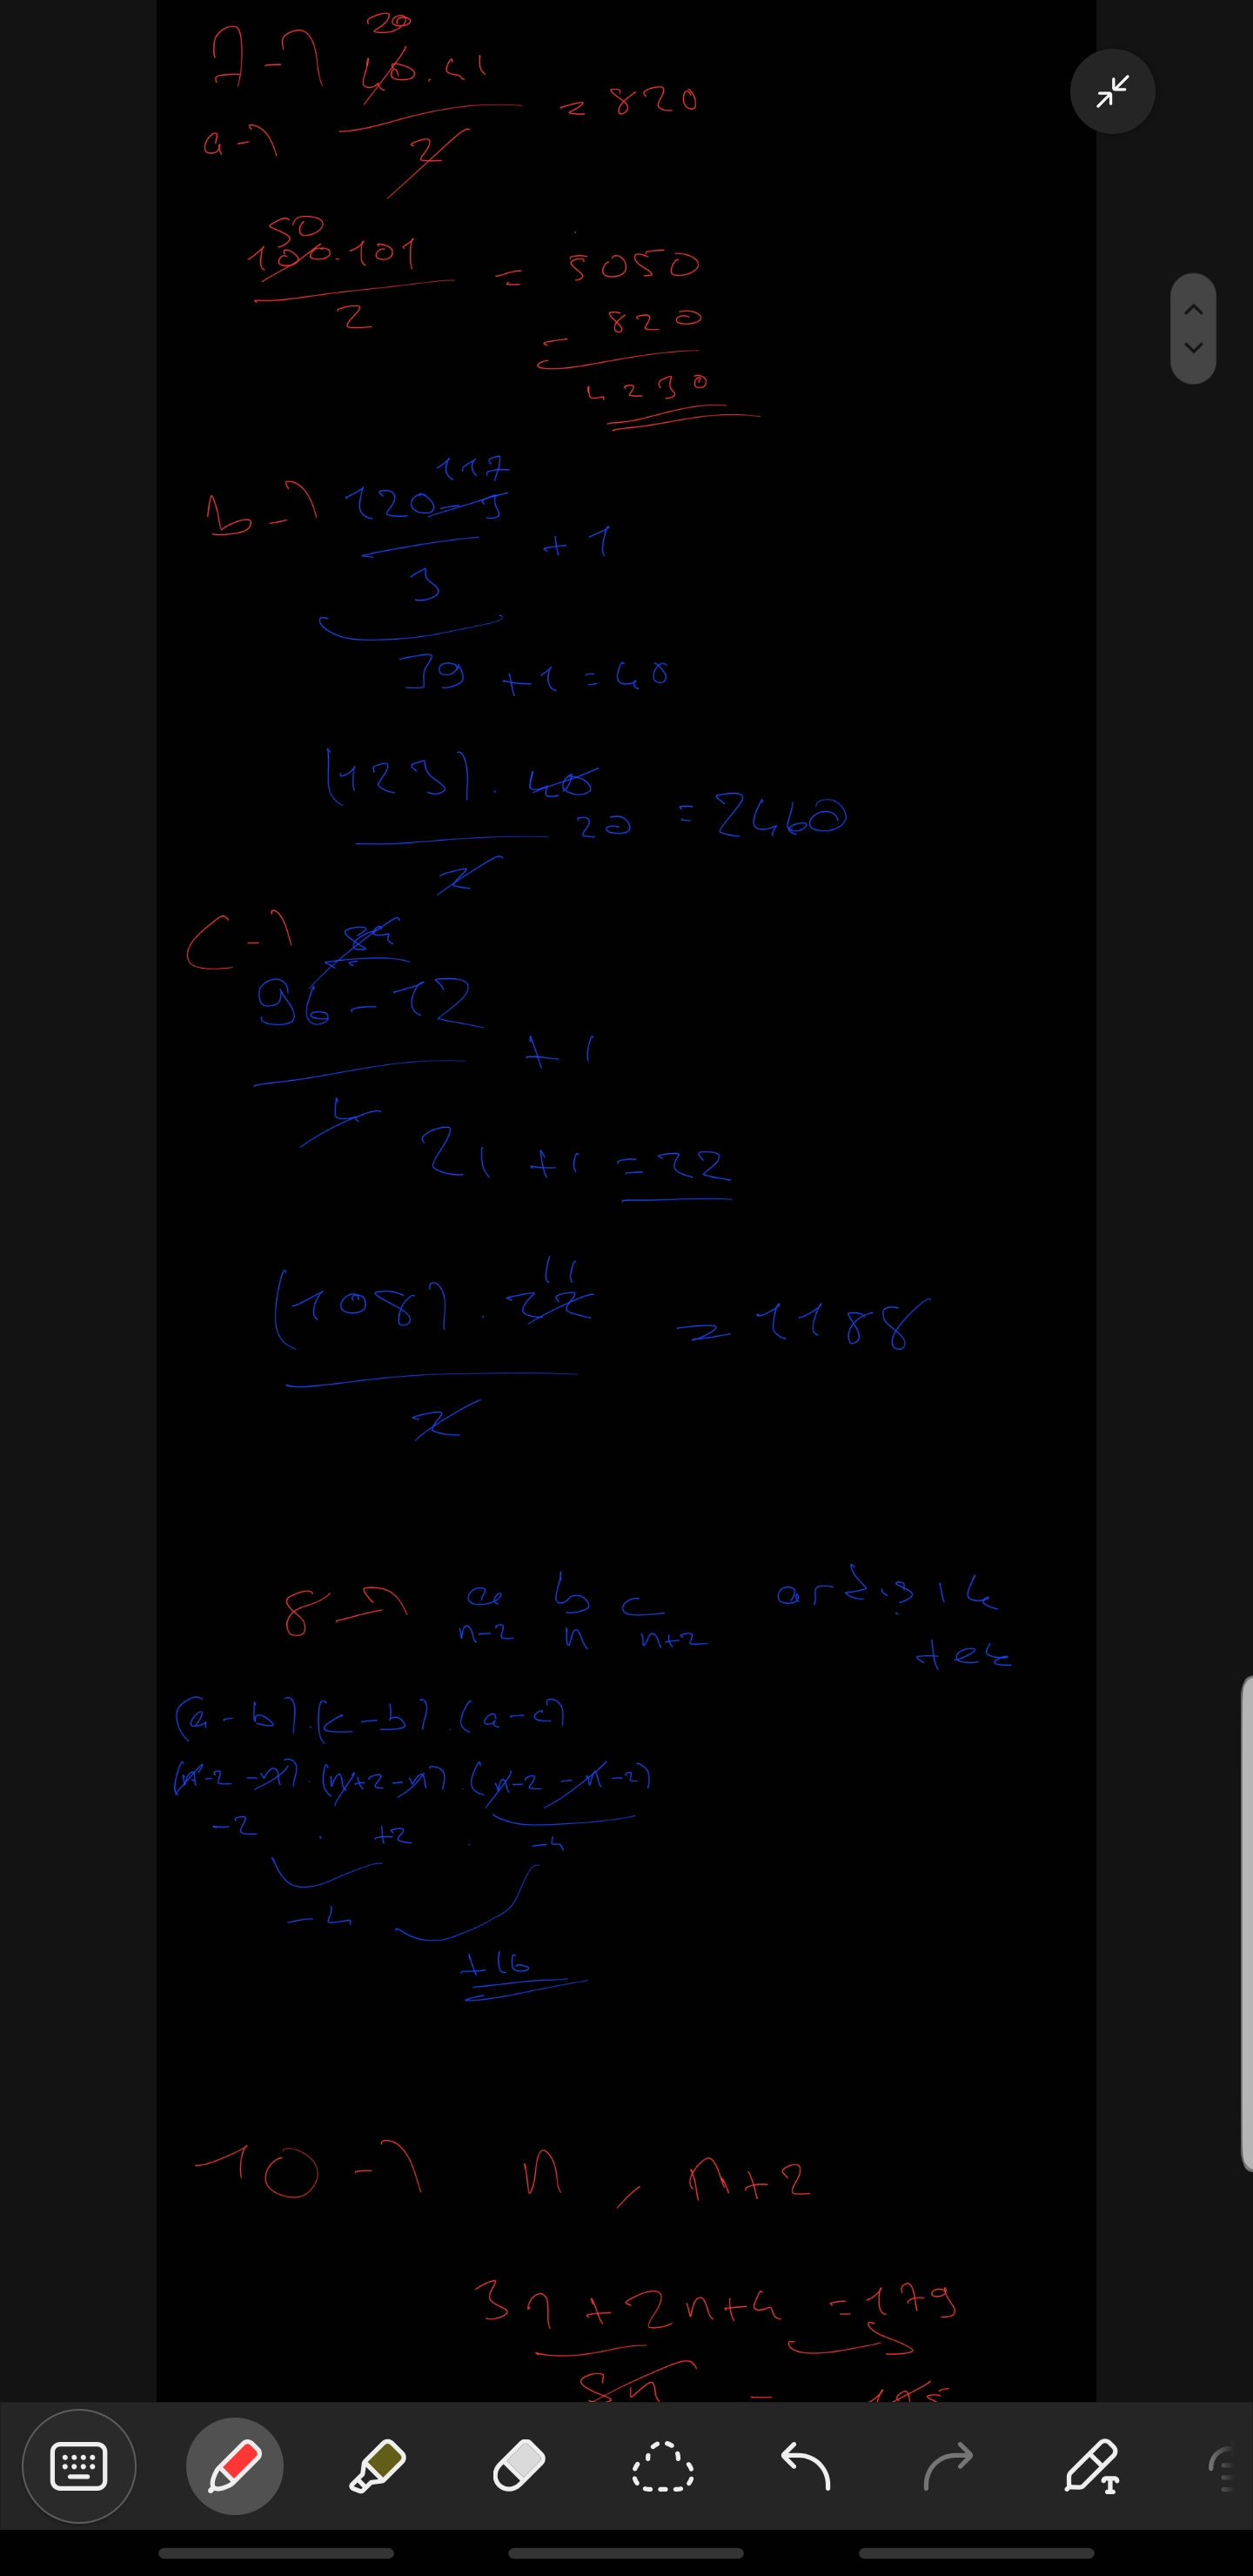 7-)
a-) 20 40.41 / 2 = 820
50 100.101 / 2 = 5050
- 820
4230
b-) 117
120-3 / 3 + 1
39 + 1 = 40
(123) . 40 20 / 2 = 2460
c-) 84
96-12 / 4 + 1
21 + 1 = 22
(108) . 22 11 / 2 = 1188
8-) a b c ardışık
n-2 n n+2 tek
(a-b).(c-b).(a-c)
(n-2-n).(n+2-n).(n-2-n-2)
-2 . +2 . -4
-4
+16
10-) n, n+2
3n+2n+4 = 179
5n = 175
T